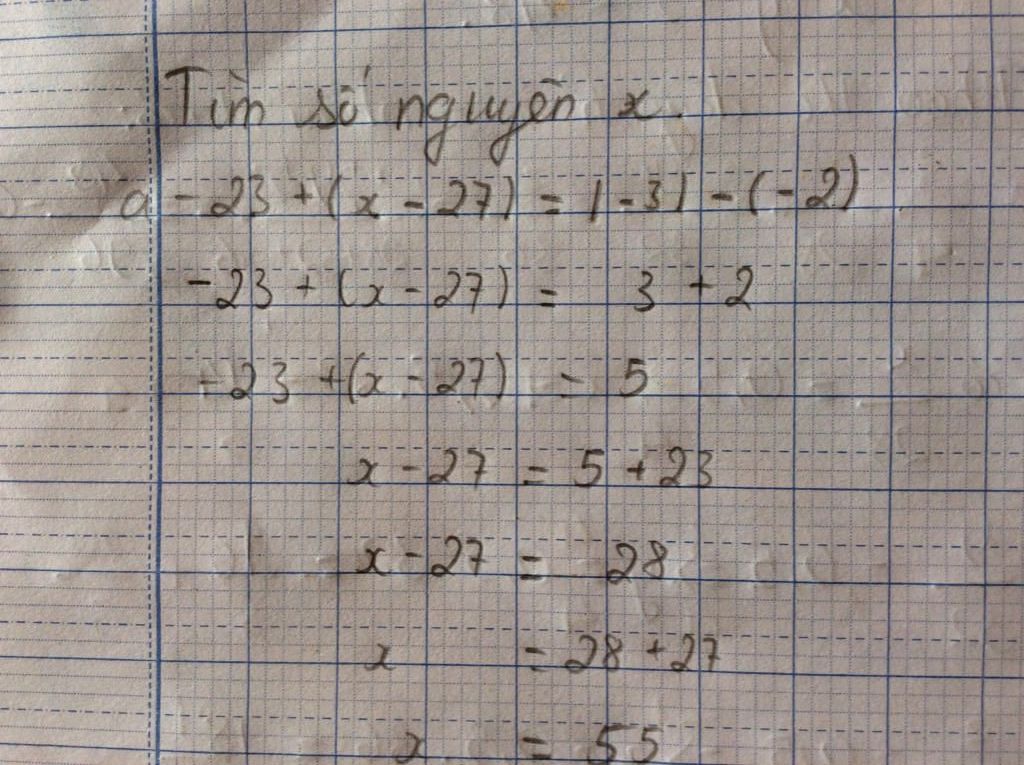 Tìm số nguyên x.
a, -23 + (x - 27) = |-3| - (-2)
-23 + (x - 27) = 3 + 2
-23 + (x - 27) = 5
x - 27 = 5 + 23
x - 27 = 28
x = 28 + 27
x = 55